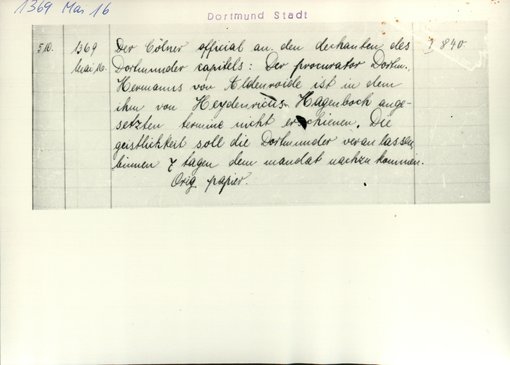 1369 Mai 16
Dortmund Stadt
1369 Mai 16.
Der Cölner official an den dechanten des
Dortmunder capitels: Der procurator Dortm.
Hermanus von Eldenroide ist in dem
ihm von Heydenricus Hagenboch ange-
setzten termine nicht erschienen. Die
geistlichkeit soll die Dortmunder veranlassen,
binnen 7 tagen dem mandat nachzukommen.
Orig. papier.
840